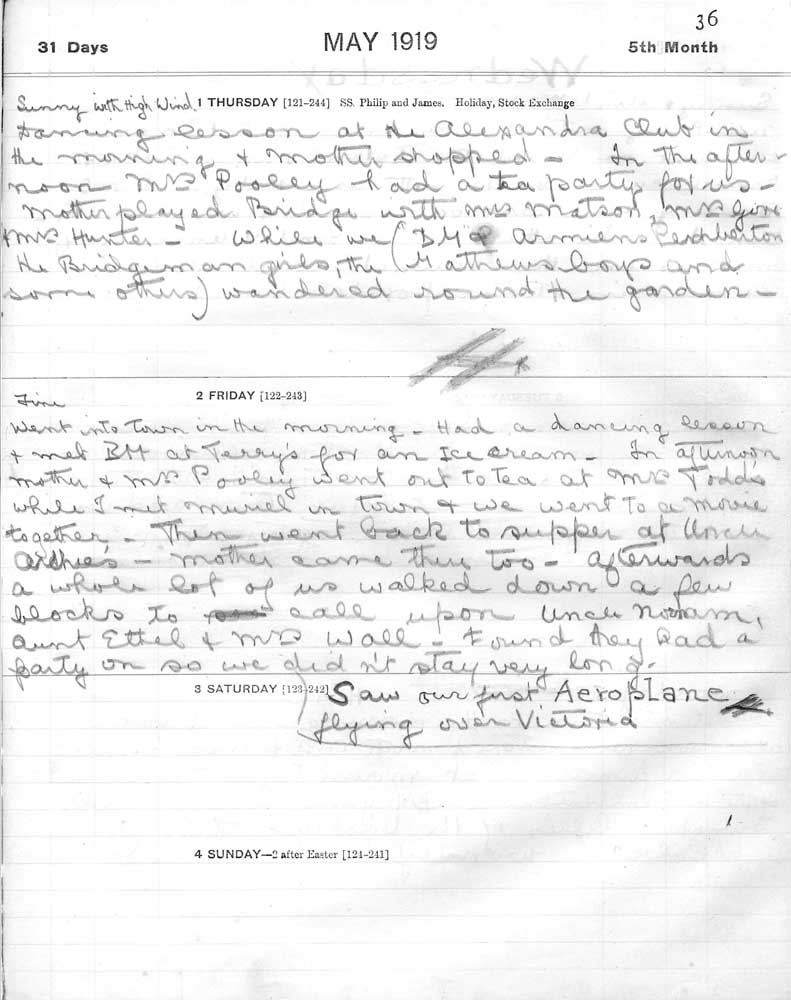 36
31 Days MAY 1919 5th Month
Sunny with High Wind. 1 THURSDAY [121-244] SS. Philip and James. Holiday, Stock Exchange
Dancing lesson at the Alexandra Club in
the morning & mother shopped - In the after-
noon Mrs Pooley had a tea party for us -
Mother played Bridge with Mrs Matson, Mrs
& Mrs Hunter - While we (BM & Armiens Pemberton
the Bridgeman girls, the Mathews boys and
some others) wandered round the garden -
2 FRIDAY [122-243]
Fine
Went into town in the morning - Had a dancing lesson
& met BM at Terry's for an Ice cream - In afternoon
mother & Mrs Pooley went out to Tea at Mrs Todds
while I met Muriel in town & we went to a movie
together - Then went back to supper at Uncle
Archie's - Mother came there too - afterwards
a whole lot of us walked down a few
blocks to call upon Uncle Norman,
Aunt Ethel & Mrs Wall - Found they had a
party on so we didn't stay very long.
3 SATURDAY [123-242] Saw our first Aeroplane
flying over Victoria
4 SUNDAY—2 after Easter [124-241]